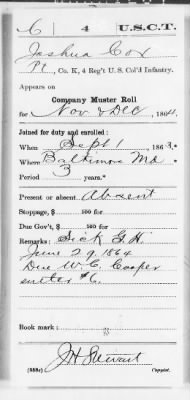 C 4 U.S.C.T.
Joshua Cox
Pt, Co. K, 4 Reg't U. S. Col'd Infantry.
Appears on
Company Muster Roll
for Nov & Dec, 1864.
Joined for duty and enrolled:
When Sept 1, 1863.
Where Baltimore Md
Period 3 years.*
Present or absent Absent
Stoppage, $ 100 for
Due Gov't, $ 100 for
Remarks: Sick G. H.
June 29, 1864
Due W. C. Cooper
sutler $6.
Book mark:
J H Stewart
(358c) Copyist.